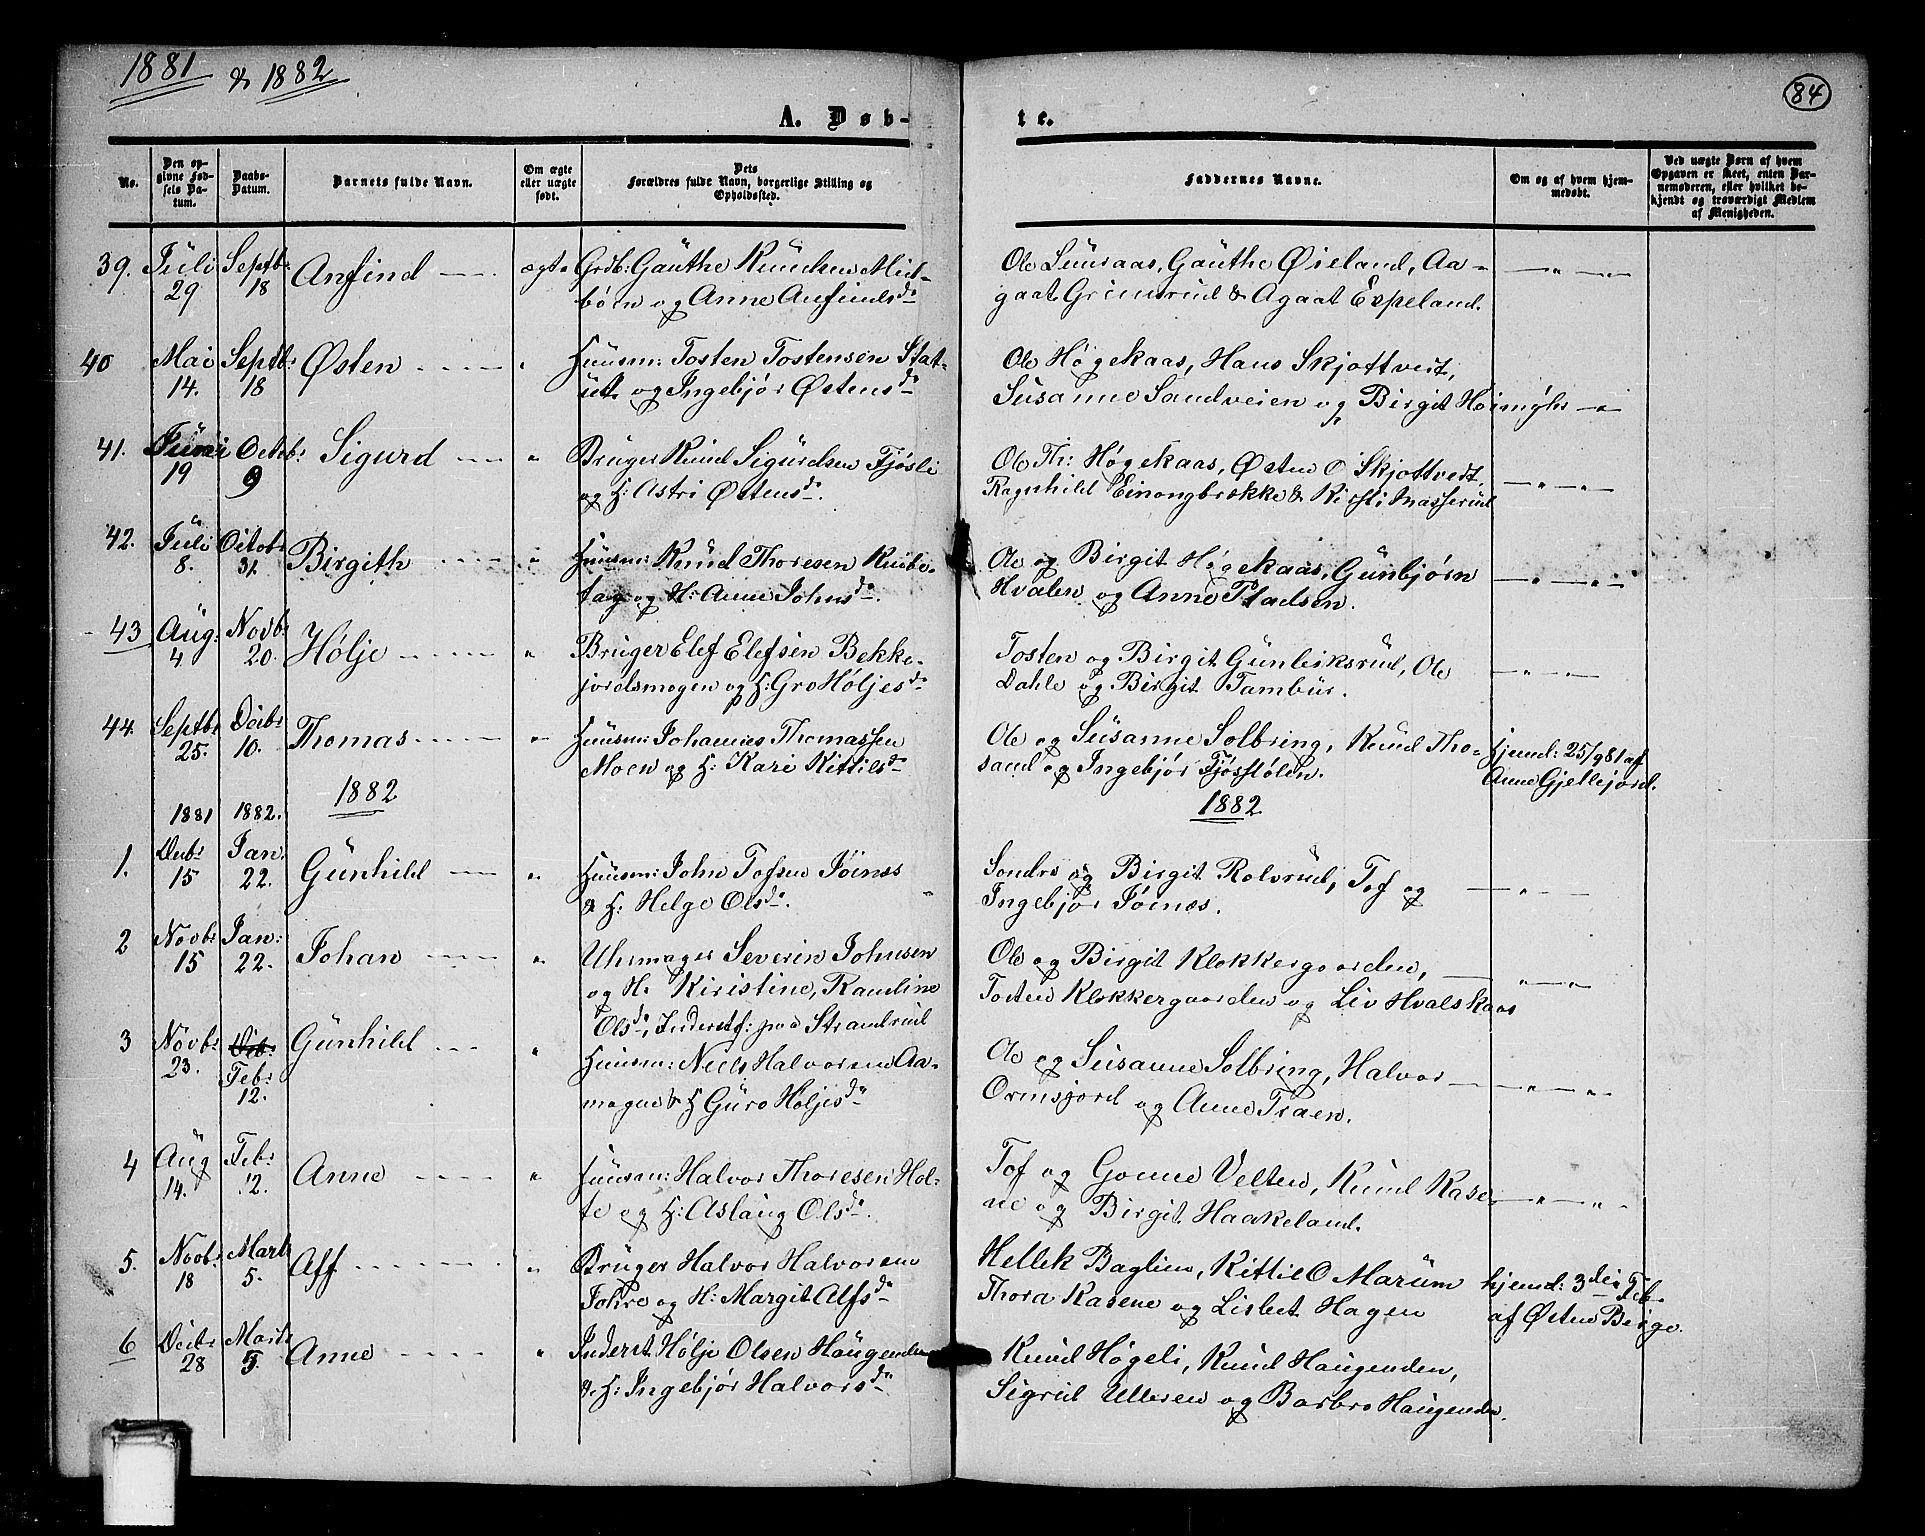 1881 & 1882
84
A. Døb-
te.
No.
Den op-
givne Fød-
sels Da-
tum.
Daabs-
Datum.
Barnets fulde Navn.
Om ægte
eller uægte
født.
Dets
Forældres fulde Navn, borgerlige Stilling og
Opholdssted.
Faddernes Navne.
Om og af hvem hjem-
medøbt.
Ved uægte Børn af hvem
Opgaven er skeet, enten Bar-
nemoderen, eller hvilket be-
kjendt og troværdigt Medlem
af Menigheden.
39. Juli 29 Septbr 18 Anfind ægte Grdb: Gauthe Knudsen Mid-
bøen og Anne Anfindsdr
Ole Luuraas, Gauthe Øieland, Aa-
gaat Grimsrud & Agaat Espeland.
40 Mai 14. Septbr: 18 Østen " Huusm: Tosten Tostensen Stat-
ut og Ingebjør Østensdr
Ole Høgekaas, Hans Skjottveit,
Susanne Sandveien og Birgit
41. Juni 19 Octobr: 9 Sigurd " Bruger Knud Sigurdsen Fjøsli
og H: Astri Østensdr.
Ole Th: Høgekaas, Østen O Skjottvedt,
Ragnhild Einongbrække & Kirsti Rasserud
42. Juli 8. Octobr 31. Birgith " Huusm: Knud Thoresen
og H: Anne Johnsdr.
Ole og Birgit Høgekaas, Gunbjørn
Hvalen og Anne Pladsen.
43 Aug: 4 Novbr 20. Hølje " Bruger Elef Elefsen Bekke-
jordsmogen og H: Gro Høljesdr
Tosten og Birgit Gunleiksrud, Ole
Dahle og Birgit Tambur.
44. Septbr 25. Dcibr 10. Thomas " Huusm: Johannes Thomassen
Moen og H: Kari Kittilsdr
Ole og Susanne Solbring, Knud Tho-
sand og Ingebjør Fjøsstølen.
hjemd: 25/9 81 af
Anne Gjellejord.
1882
1881 1882.
1882
1. Decbr 15 Jan. 22. Gunhild " Huusm: John Tofsen Jøines
& H: Helge Olsdr.
Sondre og Birgit Rolvsrud, Tof og
Ingebjør Jøines.
2 Novbr 15 Jan: 22. Johan " Uhrmager Severin Johnsen
og H: Kiristine, Ramline
Olsdr, Inderstf: paa Strandrud
Ole og Birgit Klokkergaarden,
Tosten Klokkergaarden og Liv Hvalskaas
3 Novbr 23. Febr 12. Gunhild " Huusm: Niels Halvorsen Aa-
mogne & H Guro Høljesdr
Ole og Susanne Solbring, Halvor
Ormsjord og Anne Traen.
4 Aug 14. Febr 12. Anne " Huusm: Halvor Thoresen Hol-
te og H: Aslaug Olsdr.
Tof og Gonne Velten, Knud Kase-
ne og Birgit Haakeland.
5. Novbr 18 Marts 5. Alf " Bruger Halvor Halvorsen
Johre og H: Margit Alfsdr
Hellek Baglien, Kittil O Marum
Thora Kasene og Lisbet Hagen
hjemd: 3die Feb.
af Østen Berge.
6 Dcibr 28 Marts 5 Anne " Inderst Hølje Olsen Haugenden
& H: Ingebjør Halvorsdr
Knud Høgeli, Knud Haugenden,
Sigrid Ulleren og Barbro Haugenden.